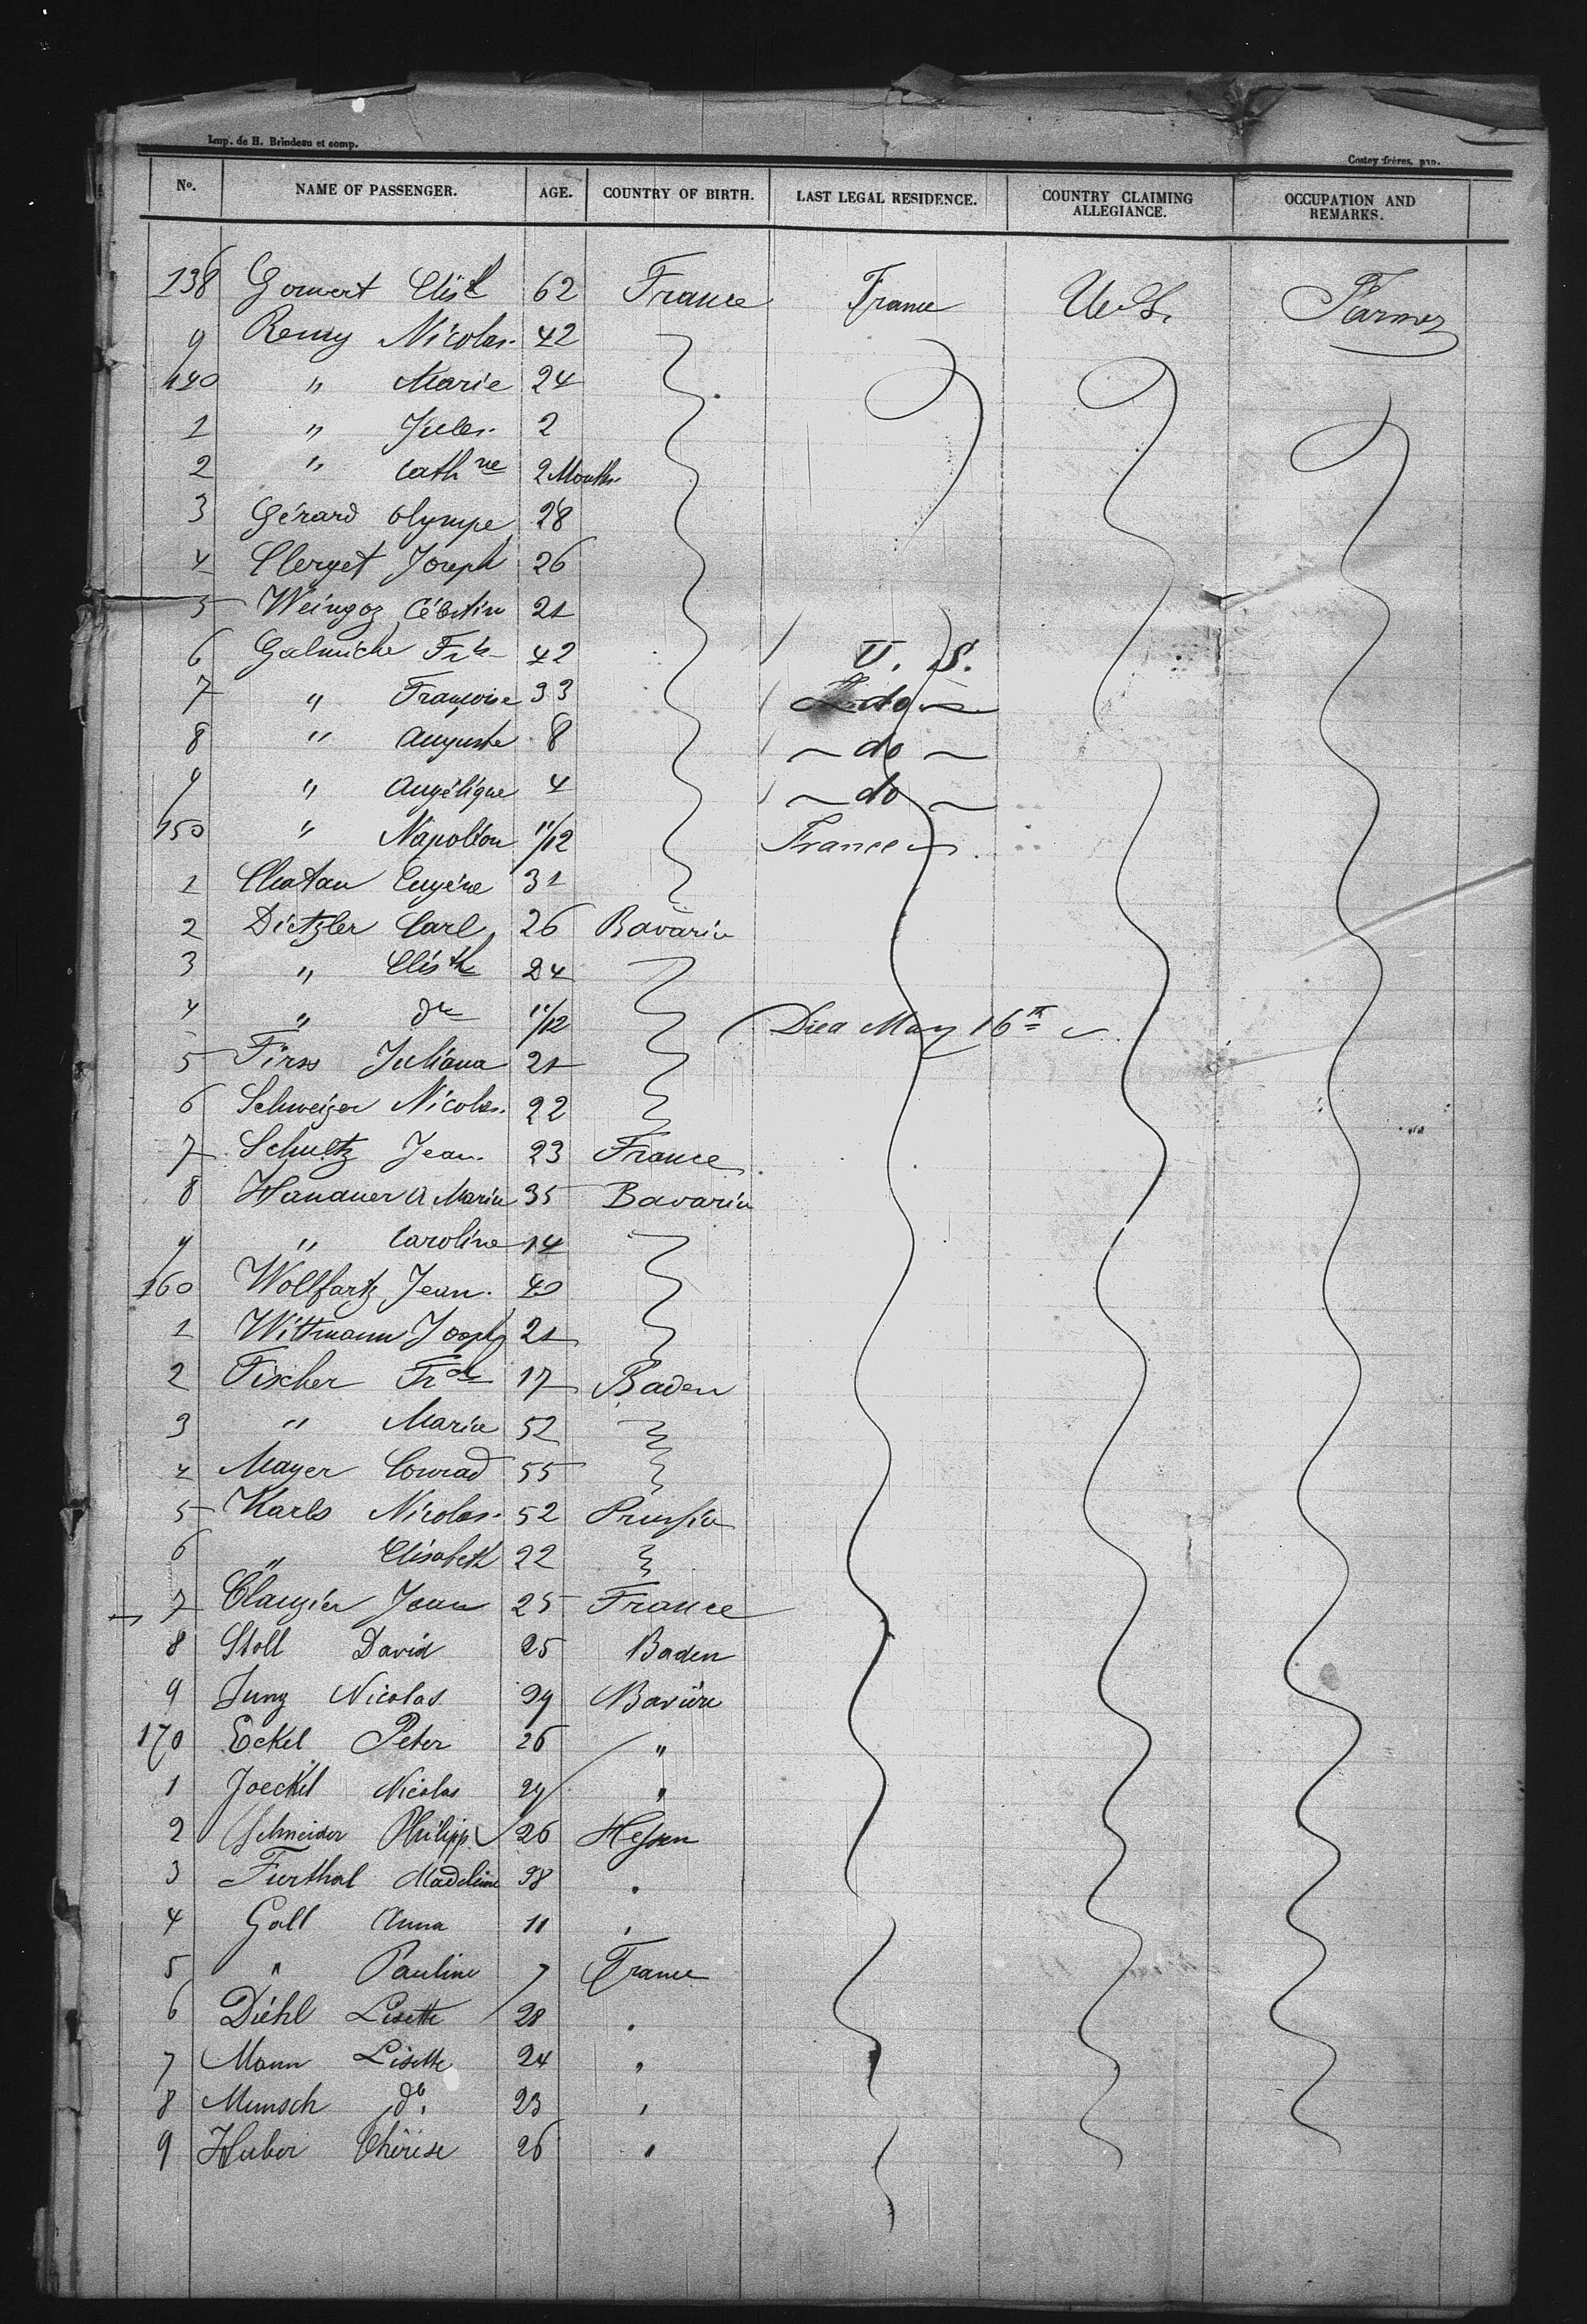 Imp. de H. Brindeau et comp.
Costey frères, pap.
No. NAME OF PASSENGER. AGE. COUNTRY OF BIRTH. LAST LEGAL RESIDENCE. COUNTRY CLAIMING ALLEGIANCE. OCCUPATION AND REMARKS.
138 62 France France U.S. Farmer
9 Remy Nicolas 42
140 " Marie 24
1 " Jules 2
2 " Cathne 2 Months
3 Gérard Olympe 28
4 Clerget Joseph 26
5 21
6 Galmiche 42 U. S.
7 " Françoise 33 do
8 " Auguste 8 do
9 " Angélique 4 do
150 " Napoléon 11/12 France
1 Eugène 31
2 Dietzler Carl 26 Bavaria
3 " Elisth 24
4 " do 11/12 Died May 16th
5 Juliana 21
6 Schweizer Nicolas 22
7 Schultz Jean 23 France
8 Hanauer A Maria 35 Bavaria
9 " Caroline 14
160 Wollfartz Jean 40
1 Wittmann Joseph 21
2 Fischer Frch 17 Baden
3 " Maria 52
4 Mayer Conrad 55
5 Karls Nicolas 52 Prussia
6 " Elisabeth 22
7 Jean 25 France
8 Stoll David 25 Baden
9 Jung Nicolas Bavière
170 Eckel Peter 26 "
1 Joeckel Nicolas "
2 Schneider Philipp 26 Hessen
3 Furthal Madeleine 38 "
4 Gall Anna 11 "
5 " Pauline 7 France
6 Diehl Lisette 28 "
7 Mann Lisette 24 "
8 Munsch do. 23 "
9 Huber Thérèse 26 "